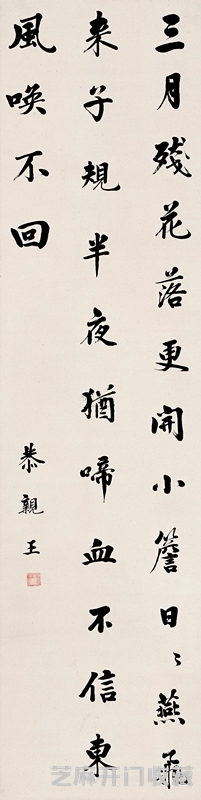 三月殘花落更開小簷日〻燕飛
来子規半夜猶啼血不信東
風喚不回
恭親王
芝麻开门收藏